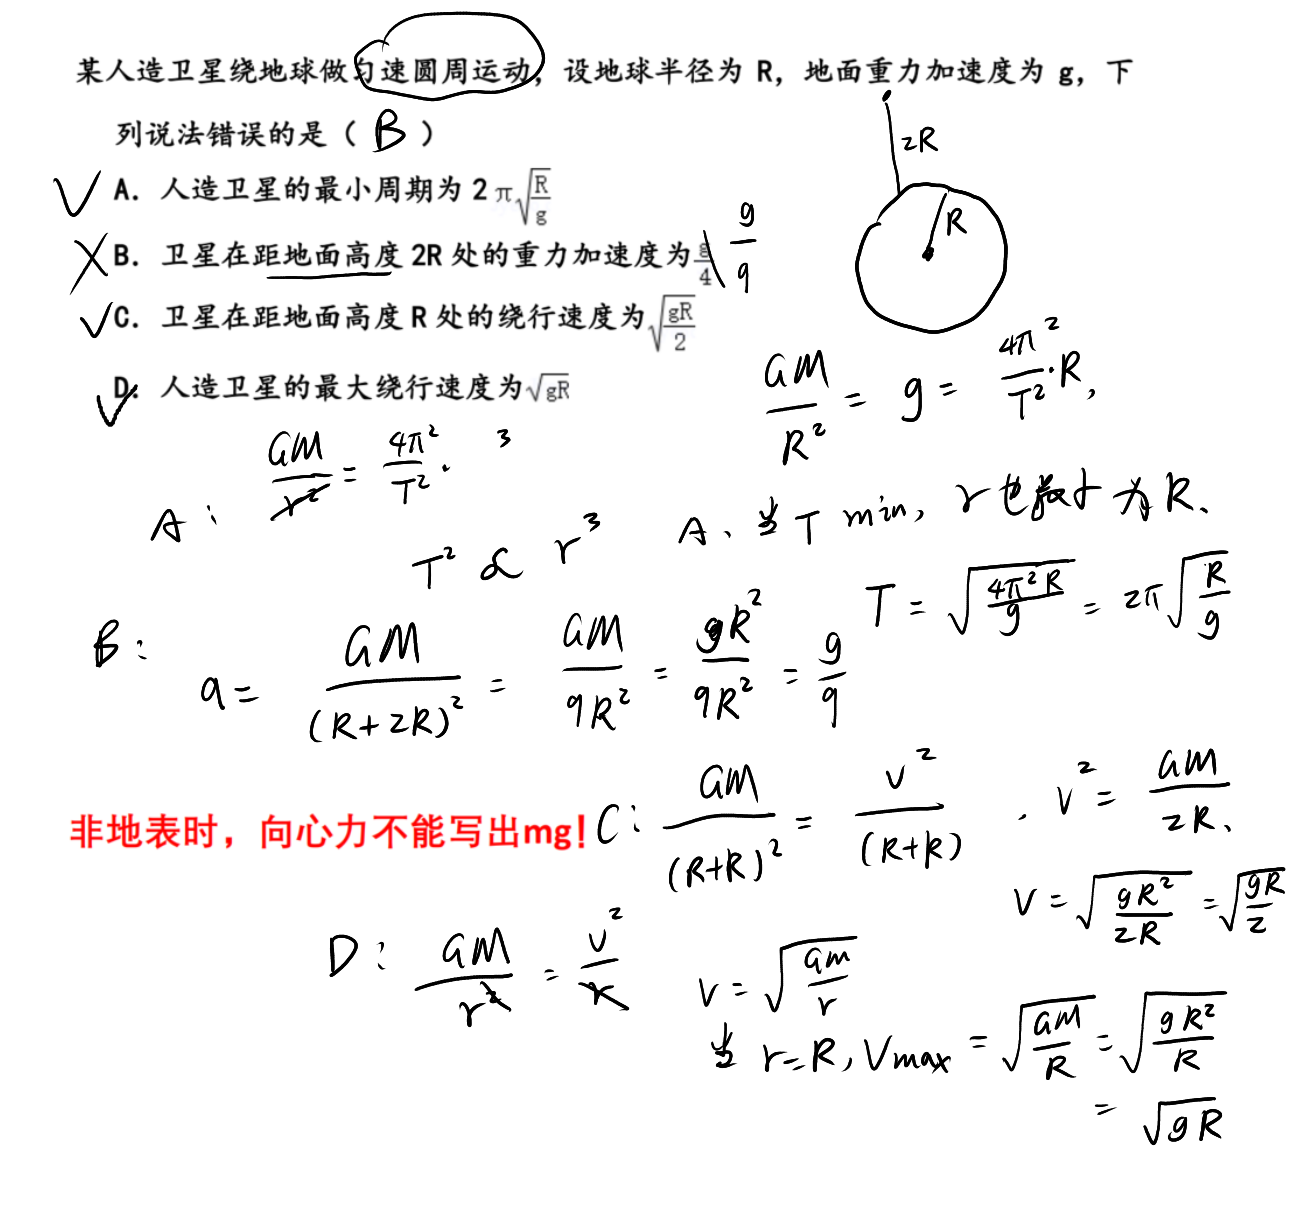 某人造卫星绕地球做匀速圆周运动，设地球半径为 R，地面重力加速度为 g，下
列说法错误的是（ B ）
2R
R
A．人造卫星的最小周期为 2π√(R/g)
B．卫星在距地面高度 2R 处的重力加速度为 g/4 g/9
C．卫星在距地面高度 R 处的绕行速度为√(gR/2)
D．人造卫星的最大绕行速度为√gR
GM/R² = g = 4π²/T²·R,
A： GM/r² = 4π²/T²· ³
T² ∝ r³
A、当T min, r也最小为R.
T = √(4π²R/g) = 2π√(R/g)
B： a = GM/(R+2R)² = GM/9R² = gR²/9R² = g/9
非地表时，向心力不能写出mg!
C： GM/(R+R)² = v²/(R+R) , v² = GM/2R、
v = √(gR²/2R) = √(gR/2)
D： GM/r² = v²/r v = √(GM/r)
当 r=R, Vmax = √(GM/R) = √(gR²/R)
= √gR